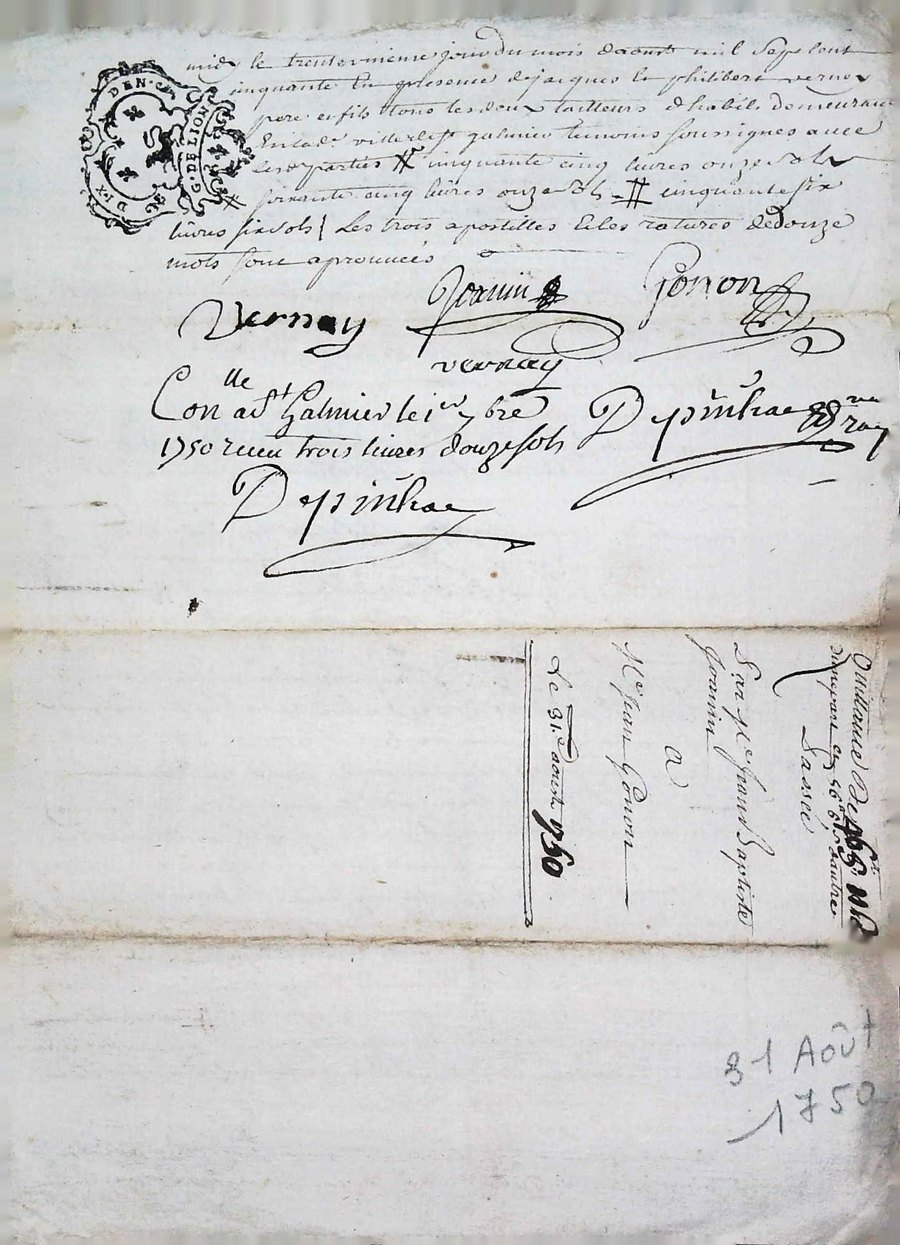 midy le trente unieme jour du mois daoust mil sept cent
cinquante en presence de jacques et philibert vernay
pere et fils tous les deux tailleurs d habits demeurant
en lad. ville de st galmier temoins soussignes avec
les parties # cinquante cinq livres onze sols
# soixante cinq livres onze sols # cinquante six
livres six sols / Les trois apostilles et les ratures de douze
mots sont aprouvées
DEN.
DIX
G. DE LION
Jeanin
Gonon
Vernay
vernay
Conlle a St Galmier le 1er 7bre
1750 receu trois livres douze sols
Depinhac
Depinhac
Quittance de
Passee
Par Me Jean Baptiste
Jeanin
a
Me Jean Gonon
Le 31e aoust 1750
31 Août
1750